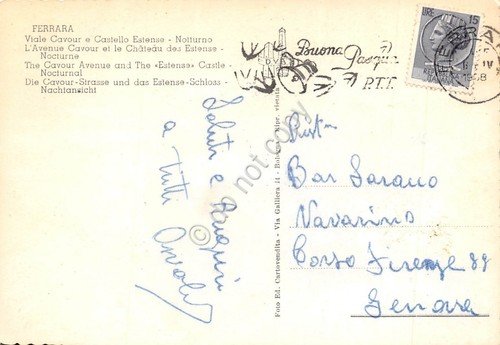 FERRARA
Viale Cavour e Castello Estense - Notturno
L'Avenue Cavour et le Château des Estense -
Nocturne
The Cavour Avenue and The «Estense» Castle -
Nocturnal
Die Cavour-Strasse und das Estense-Schloss -
Nachtansicht
Buona
Pasqua
P.T.T.
LIRE 15
FERRARA
IV
1958
Saluti e
a tutti
Foto Ed. Cartovendita - Via Galliera 14 - Bologna - Ripr. vietata
do not copy
Bar Sarano
Navarino
Corso Firenze 89
Genova